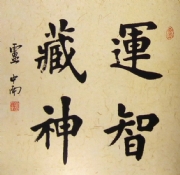 運智
藏神
靈中南